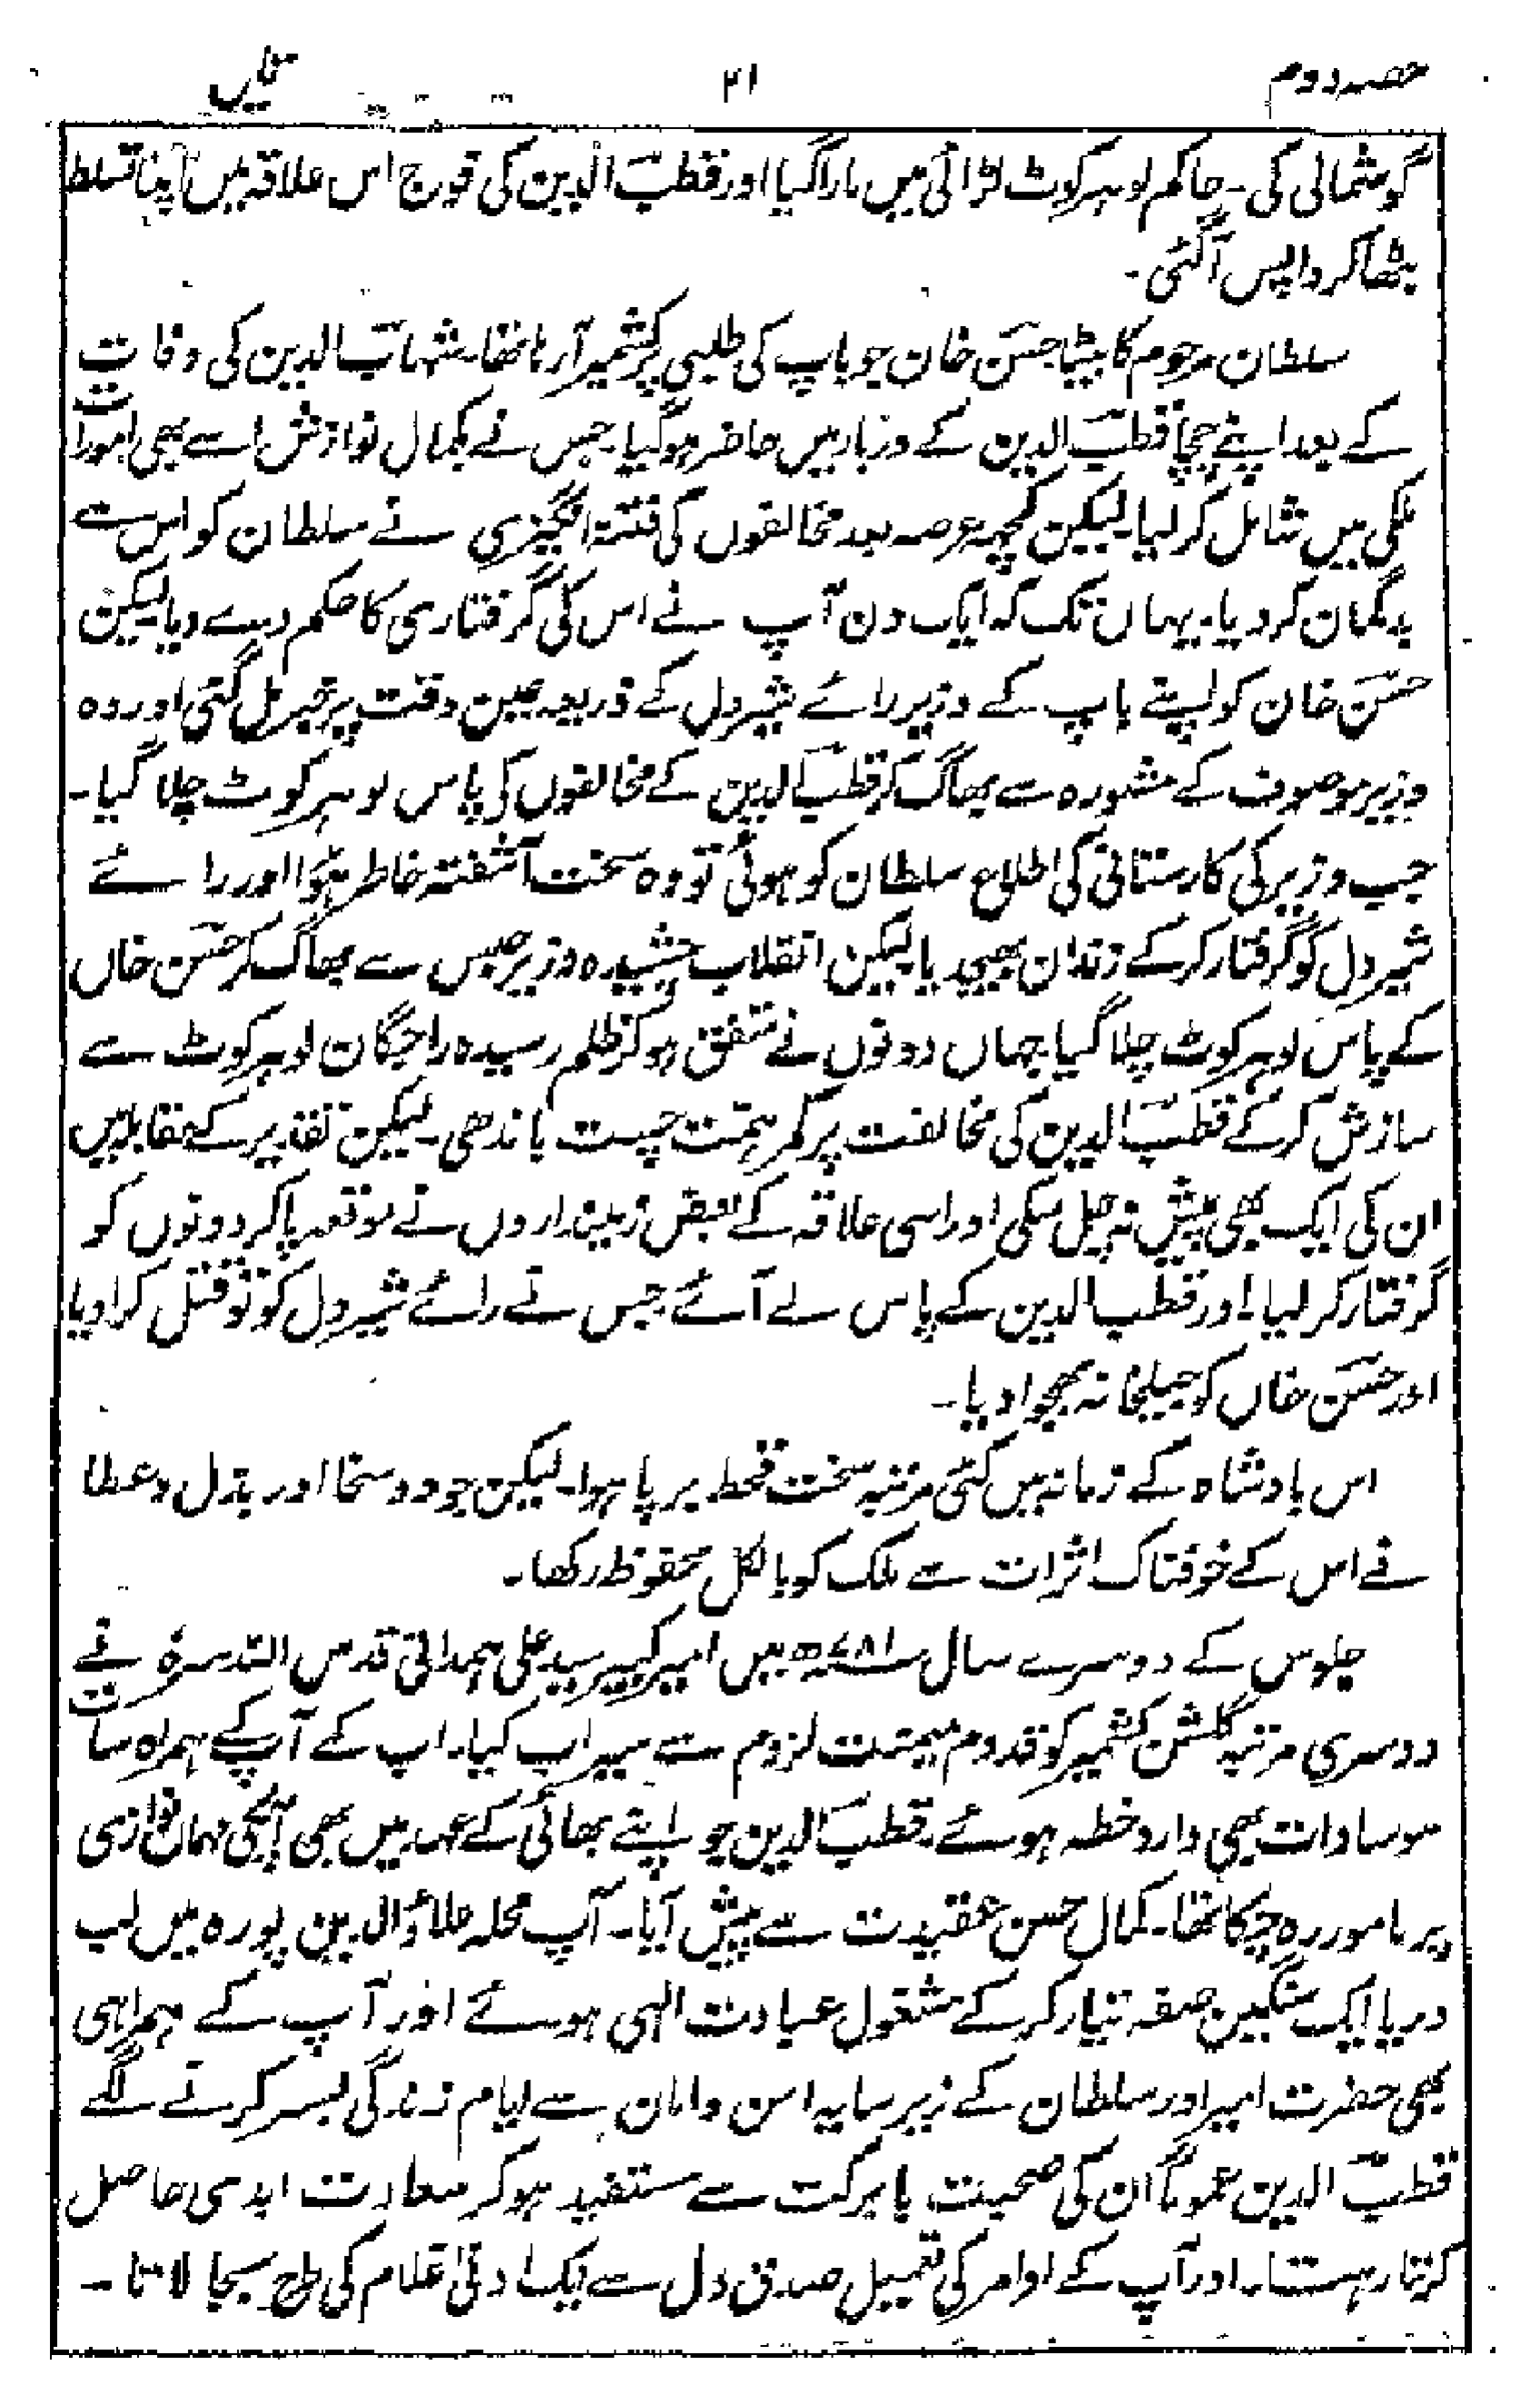 حصہ دوم ۲۱
گوشمالی کی۔ حاکم لوہرکوٹ لڑائی میں مارا گیا اور قطب الدین کی فوج اس علاقہ میں اپنا تسلط
بٹھا کر واپس آگئی۔
سلطان مرحوم کا بیٹا حسن خان جو باپ کی طلبی پر کشمیر آرہا تھا۔ شہاب الدین کی وفات
کے بعد اپنے چچا قطب الدین کے دربار میں حاضر ہوگیا۔ جس نے بکمال نوازش اسے بھی امورات
ملکی میں شامل کرلیا۔ لیکن کچھ عرصہ بعد مخالفوں کی فتنہ انگیزی نے سلطان کو اس سے
بدگمان کردیا۔ یہاں تک کہ ایک دن آپ نے اس کی گرفتاری کا حکم دیدے دیا۔ لیکن
حسن خان کو اپنے باپ کے وزیر رائے شیردل کے ذریعہ عین وقت پر خبر مل گئی اور وہ
وزیر موصوف کے مشورہ سے بھاگ کر قطب الدین کے مخالفوں کے پاس لوہرکوٹ چلا گیا۔
جب وزیر کی کارستانی کی اطلاع سلطان کو ہوئی تو وہ سخت آشفتہ خاطر ہؤا اور رائے
شیردل کو گرفتار کرکے زندان بھیجدیا لیکن انقلاب چشیدہ وزیر حبس سے بھاگ کر حسن خاں
کے پاس لوہرکوٹ چلا گیا۔ جہاں دونوں نے متفق ہوکر ظلم رسیدہ راجگان لوہرکوٹ سے
سازش کرکے قطب الدین کی مخالفت پر کمر ہمت چست باندھی۔ لیکن تقدیر کے مقابلہ میں
ان کی ایک بھی پیش نہ چل سکی اور اسی علاقہ کے بعض زمینداروں نے موقعہ پاکر دونوں کو
گرفتار کرلیا۔ اور قطب الدین کے پاس لے آئے جس نے رائے شیردل کو تو قتل کرادیا
اور حسن خاں کو جیلخانہ بھجوا دیا۔
اس بادشاہ کے زمانہ میں کئی مرتبہ سخت قحط برپا ہوا۔ لیکن جود و سخا اور بذل و عطا
نے اس کے خوفناک اثرات سے ملک کو بالکل محفوظ رکھا۔
جلوس کے دوسرے سال ۷۸۱ھ میں امیر کبیر سید علی ہمدانی قدس اللہ سرہٗ نے
دوسری مرتبہ گلشن کشمیر کو قدوم میمنت لزوم سے سیراب کیا۔ اب کے آپ کے ہمراہ سات
سو سادات بھی وارد خطہ ہوئے۔ قطب الدین جو اپنے بھائی کے عہد میں بھی آپکی مہمان نوازی
پر مامور رہ چکا تھا۔ کمال حسن عقیدت سے پیش آیا۔ آپ محلہ علاؤ الدین پورہ میں لب
دریا ایک سنگین صفہ تیار کرکے مشغول عبادت الہی ہوئے اور آپ کے ہمراہی
بھی حضرت امیر اور سلطان کے زیر سایہ امن و امان سے ایام زندگی بسر کرنے لگے
قطب الدین عموماً ان کی صحبت بابرکت سے مستفید ہوکر سعادت ابدی حاصل
کرتا رہتا۔ اور آپ کے اوامر کی تعمیل صدق دل سے ایک ادنیٰ غلام کی طرح بجا لاتا۔